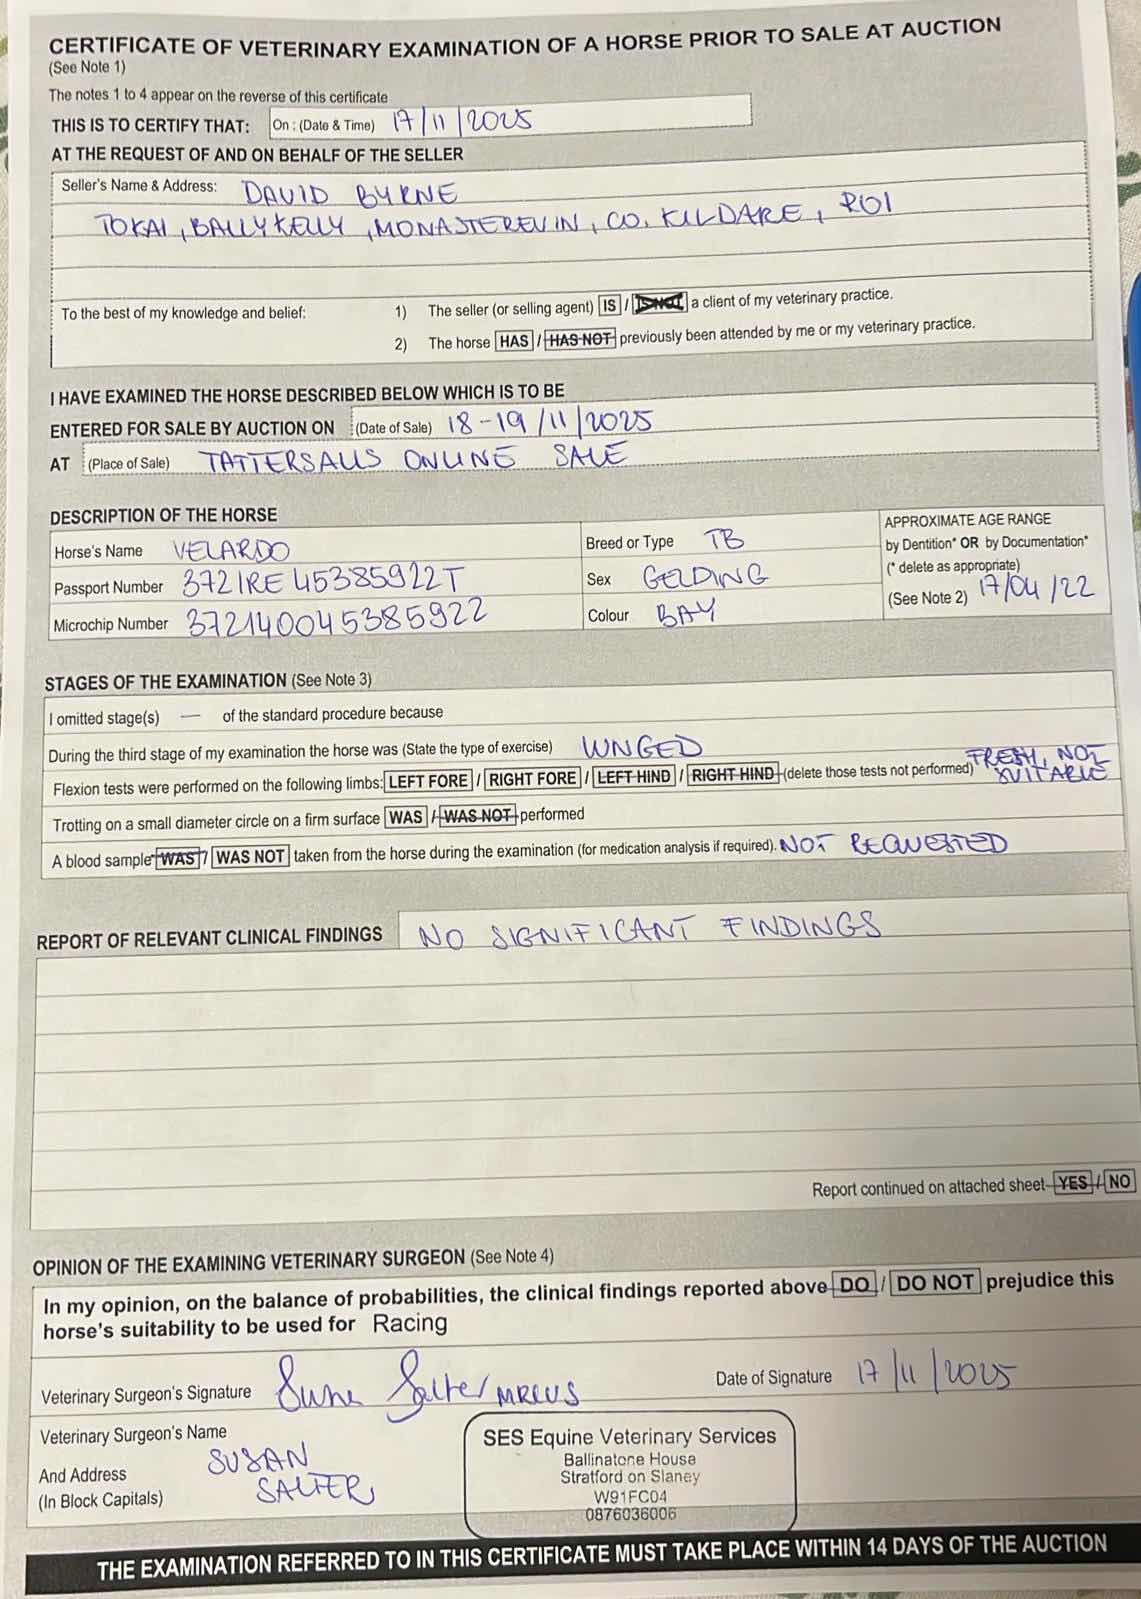 CERTIFICATE OF VETERINARY EXAMINATION OF A HORSE PRIOR TO SALE AT AUCTION
(See Note 1)
The notes 1 to 4 appear on the reverse of this certificate
THIS IS TO CERTIFY THAT: On : (Date & Time) 17/11/2025
AT THE REQUEST OF AND ON BEHALF OF THE SELLER
Seller's Name & Address: DAVID BYRNE
TOKAI, BALLYKELLY, MONASTEREVIN, CO. KILDARE, ROI
To the best of my knowledge and belief: 1) The seller (or selling agent) IS / IS NOT a client of my veterinary practice.
2) The horse HAS / HAS NOT previously been attended by me or my veterinary practice.
I HAVE EXAMINED THE HORSE DESCRIBED BELOW WHICH IS TO BE
ENTERED FOR SALE BY AUCTION ON (Date of Sale) 18-19/11/2025
AT (Place of Sale) TATTERSALLS ONLINE SALE
DESCRIPTION OF THE HORSE
Horse's Name VELARDO
Breed or Type TB
Passport Number 372IRE45385922T
Sex GELDING
Microchip Number 372140045385922
Colour BAY
APPROXIMATE AGE RANGE
by Dentition* OR by Documentation*
(* delete as appropriate)
(See Note 2) 17/04/22
STAGES OF THE EXAMINATION (See Note 3)
I omitted stage(s) — of the standard procedure because
During the third stage of my examination the horse was (State the type of exercise) LUNGED
Flexion tests were performed on the following limbs: LEFT FORE / RIGHT FORE / LEFT HIND / RIGHT HIND (delete those tests not performed) FRESH, NOT
SUITABLE
Trotting on a small diameter circle on a firm surface WAS / WAS NOT performed
A blood sample WAS / WAS NOT taken from the horse during the examination (for medication analysis if required). NOT REQUESTED
REPORT OF RELEVANT CLINICAL FINDINGS NO SIGNIFICANT FINDINGS
Report continued on attached sheet YES / NO
OPINION OF THE EXAMINING VETERINARY SURGEON (See Note 4)
In my opinion, on the balance of probabilities, the clinical findings reported above DO / DO NOT prejudice this
horse's suitability to be used for Racing
Veterinary Surgeon's Signature Susan Salter MRCVS
Date of Signature 17/11/2025
Veterinary Surgeon's Name
And Address
(In Block Capitals)
SUSAN
SALTER
SES Equine Veterinary Services
Ballinatone House
Stratford on Slaney
W91FC04
0876036006
THE EXAMINATION REFERRED TO IN THIS CERTIFICATE MUST TAKE PLACE WITHIN 14 DAYS OF THE AUCTION